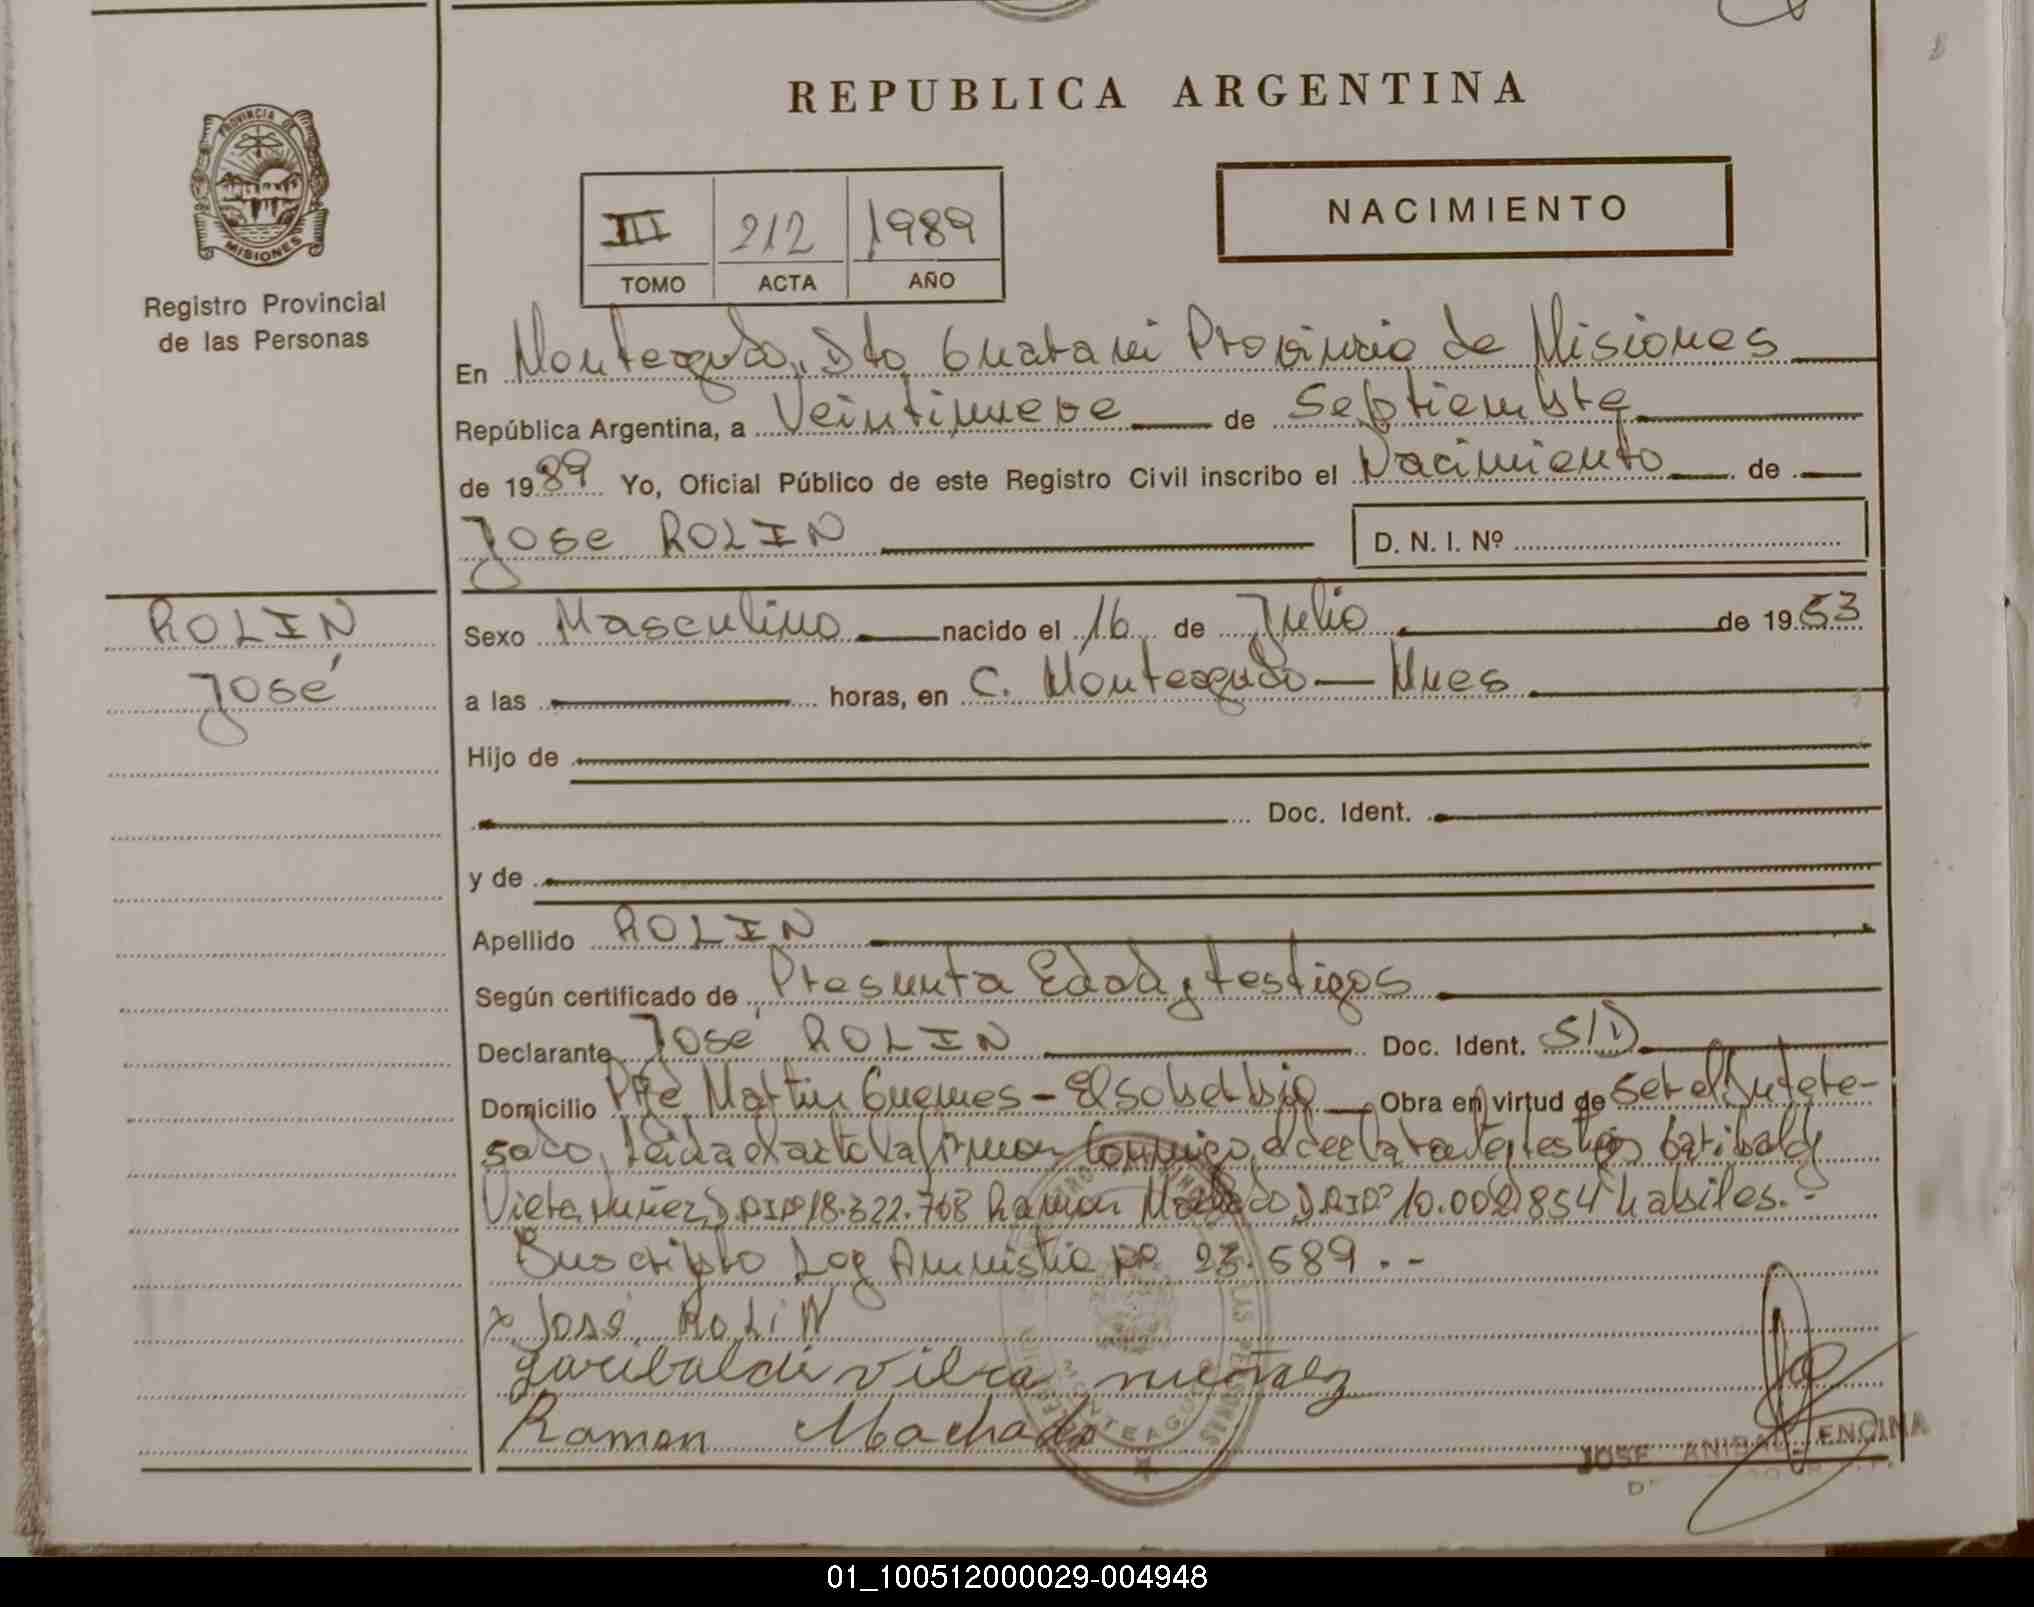 REPUBLICA ARGENTINA
PROVINCIA DE MISIONES
Registro Provincial
de las Personas
III 212 1989
TOMO ACTA AÑO
NACIMIENTO
En Monteagudo, Dto Guarani Provincia de Misiones
República Argentina, a Veintinueve de Septiembre
de 1989 Yo, Oficial Público de este Registro Civil inscribo el Nacimiento de
Jose ROLIN D. N. I. Nº
ROLIN
José
Sexo Masculino nacido el 16 de Julio de 1953
a las horas, en C. Monteagudo - Mnes
Hijo de
Doc. Ident.
y de
Apellido ROLIN
Según certificado de Presunta Edad y testigos
Declarante José ROLIN Doc. Ident. S/D
Domicilio Pje Martin Guemes - El soberbio Obra en virtud de ser el Intere-
sado, Leida el acta la firman conmigo, el declarante y testigos Garibaldy
Nuñez D.N.I.Nº 18.322.768 Ramon Machado D.N.I.Nº 10.002.854 habiles.-
Inscripto Ley Amnistia Nº 23.589.-
x José ROLIN
garibaldi
Ramon Machado
MONTEAGUDO
JOSE ANIBAL ENCINA
01_100512000029-004948